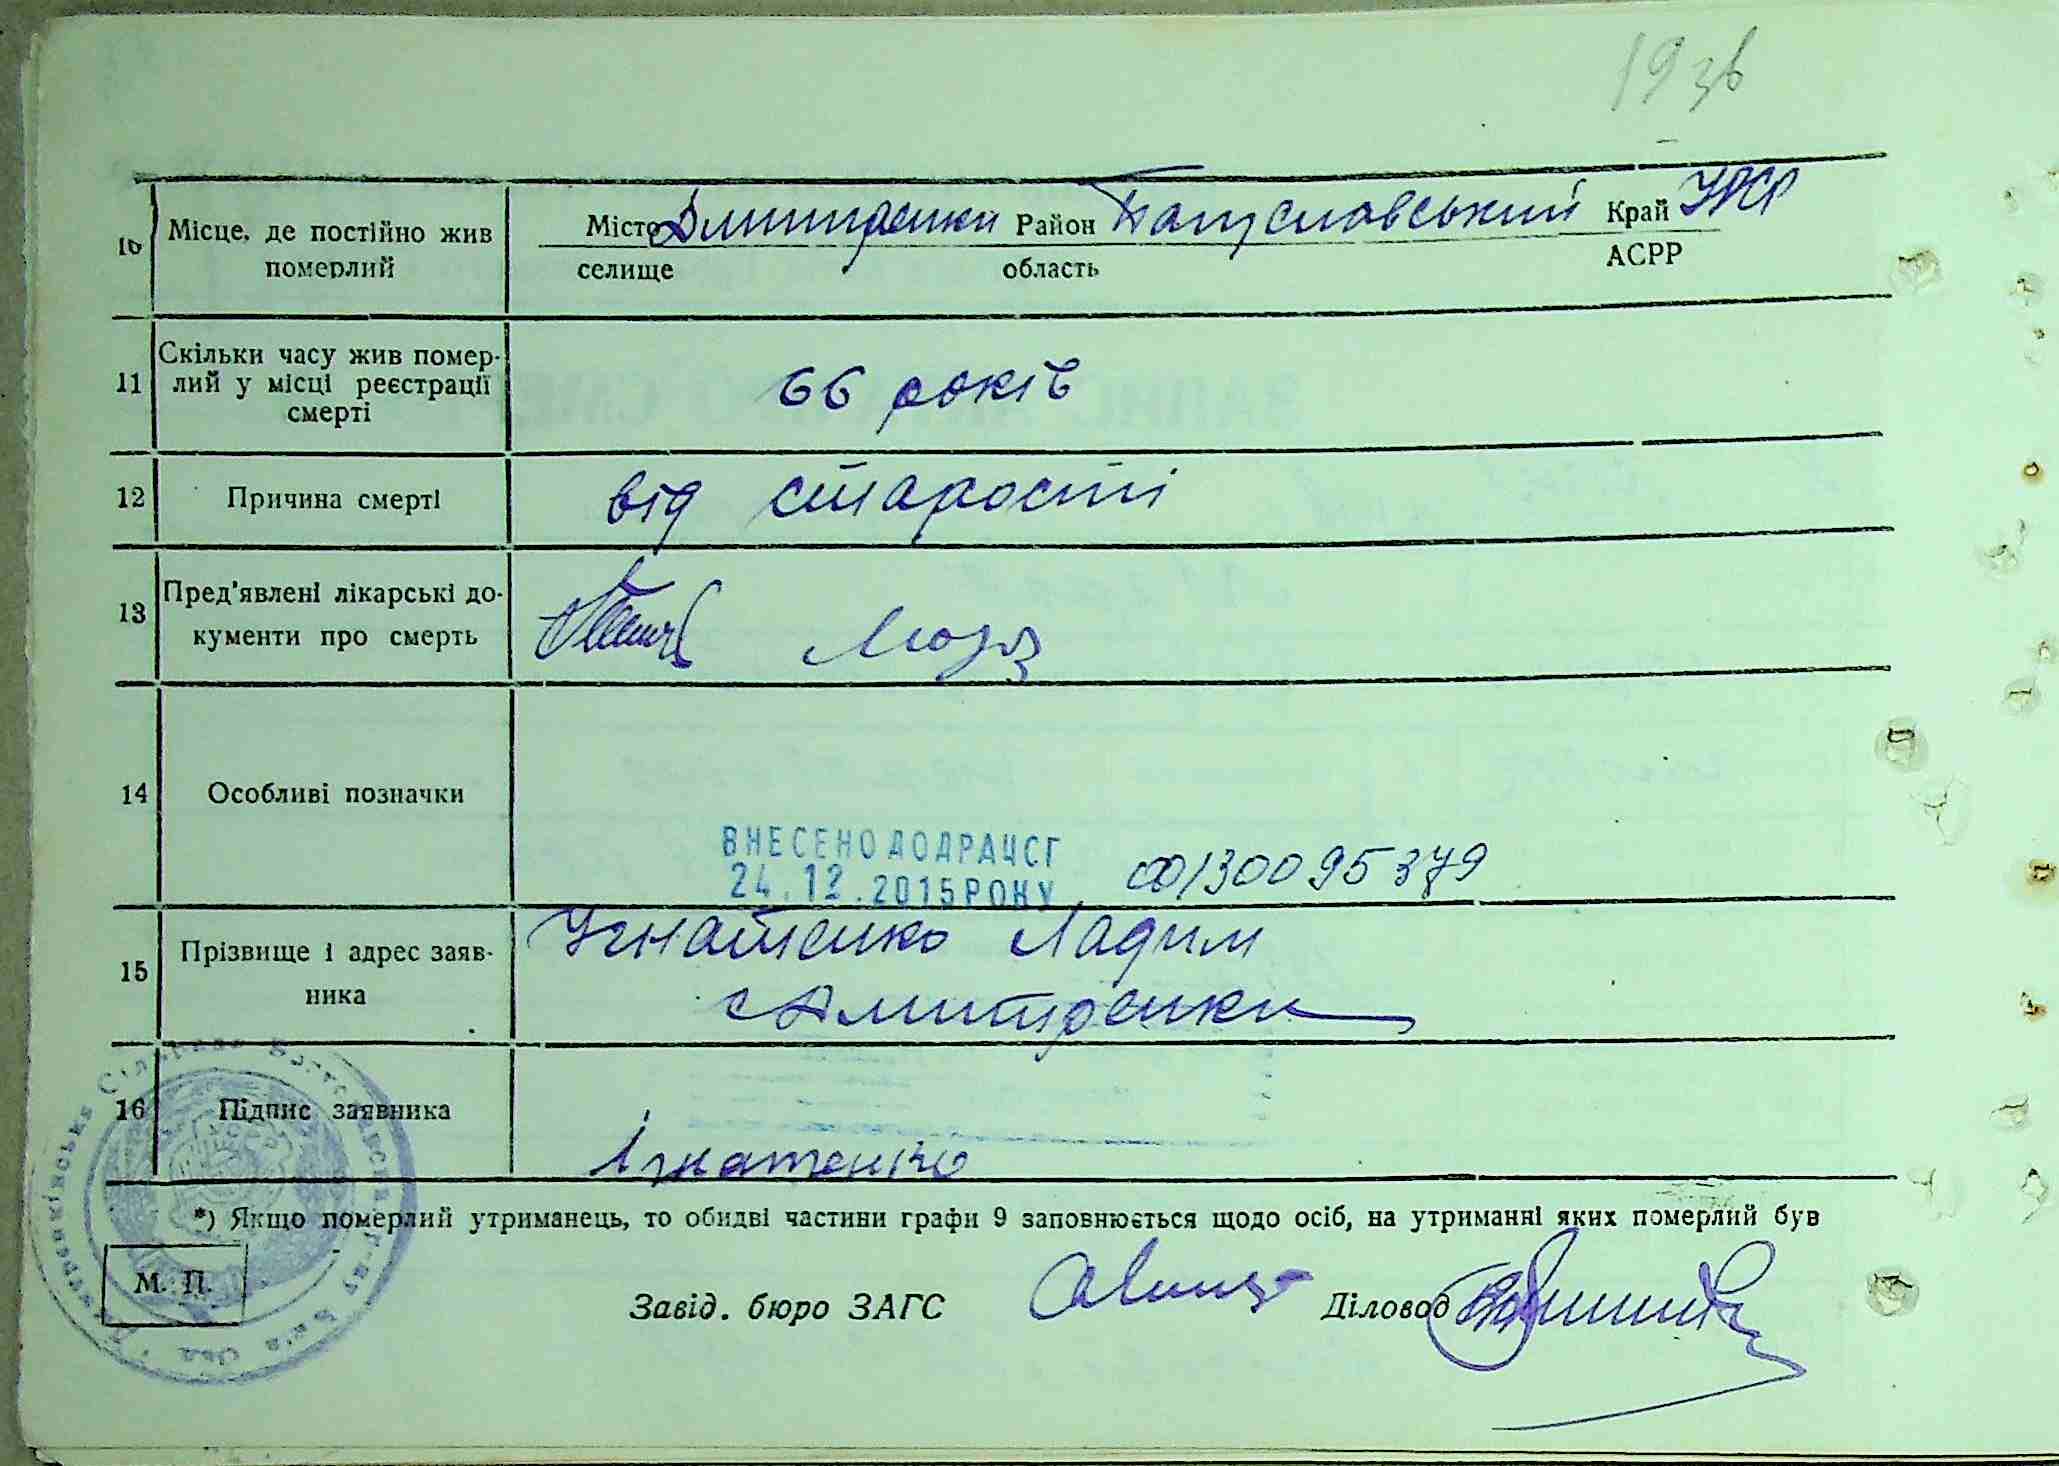 19 зв
10 Місце, де постійно жив померлий
Місто Дмитренки Район Богуславський Край УРСР
селище область АСРР
11 Скільки часу жив помер-
лий у місці реєстрації
смерті
66 років
12 Причина смерті від старості
13 Пред'явлені лікарські до-
кументи про смерть
14 Особливі позначки
ВНЕСЕНО ДО ДРАЦСГ
24.12.2015 РОКУ 00130095379
15 Прізвище і адрес заяв-
ника
Ігнатенко
с Дмитренки
16 Підпис заявника
Ігнатенко
*) Якщо померлий утриманець, то обидві частини графи 9 заповнюється щодо осіб, на утриманні яких померлий був
М. П.
Завід. бюро ЗАГС Діловод